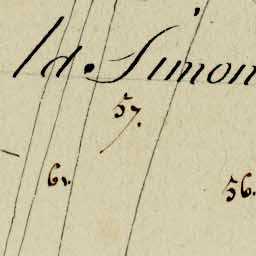 ld. Simon
57.
61.
56.